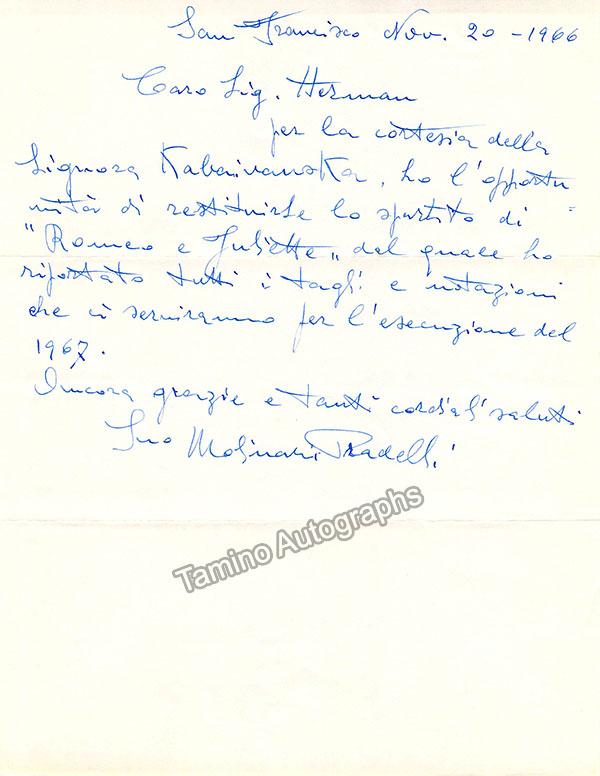 San Francisco Nov. 20 - 1966
Caro Sig. Herman
per la cortesia della
Signora Kabaivanska, ho l'opportu
nità di restituirle lo spartito di
"Romeo e Juliette" dal quale ho
riportato tutti i tagli e notazioni
che ci serviranno per l'esecuzione del
1967.
Ancora grazie e tanti cordiali saluti
Suo Molinari Pradelli
Tamino Autographs